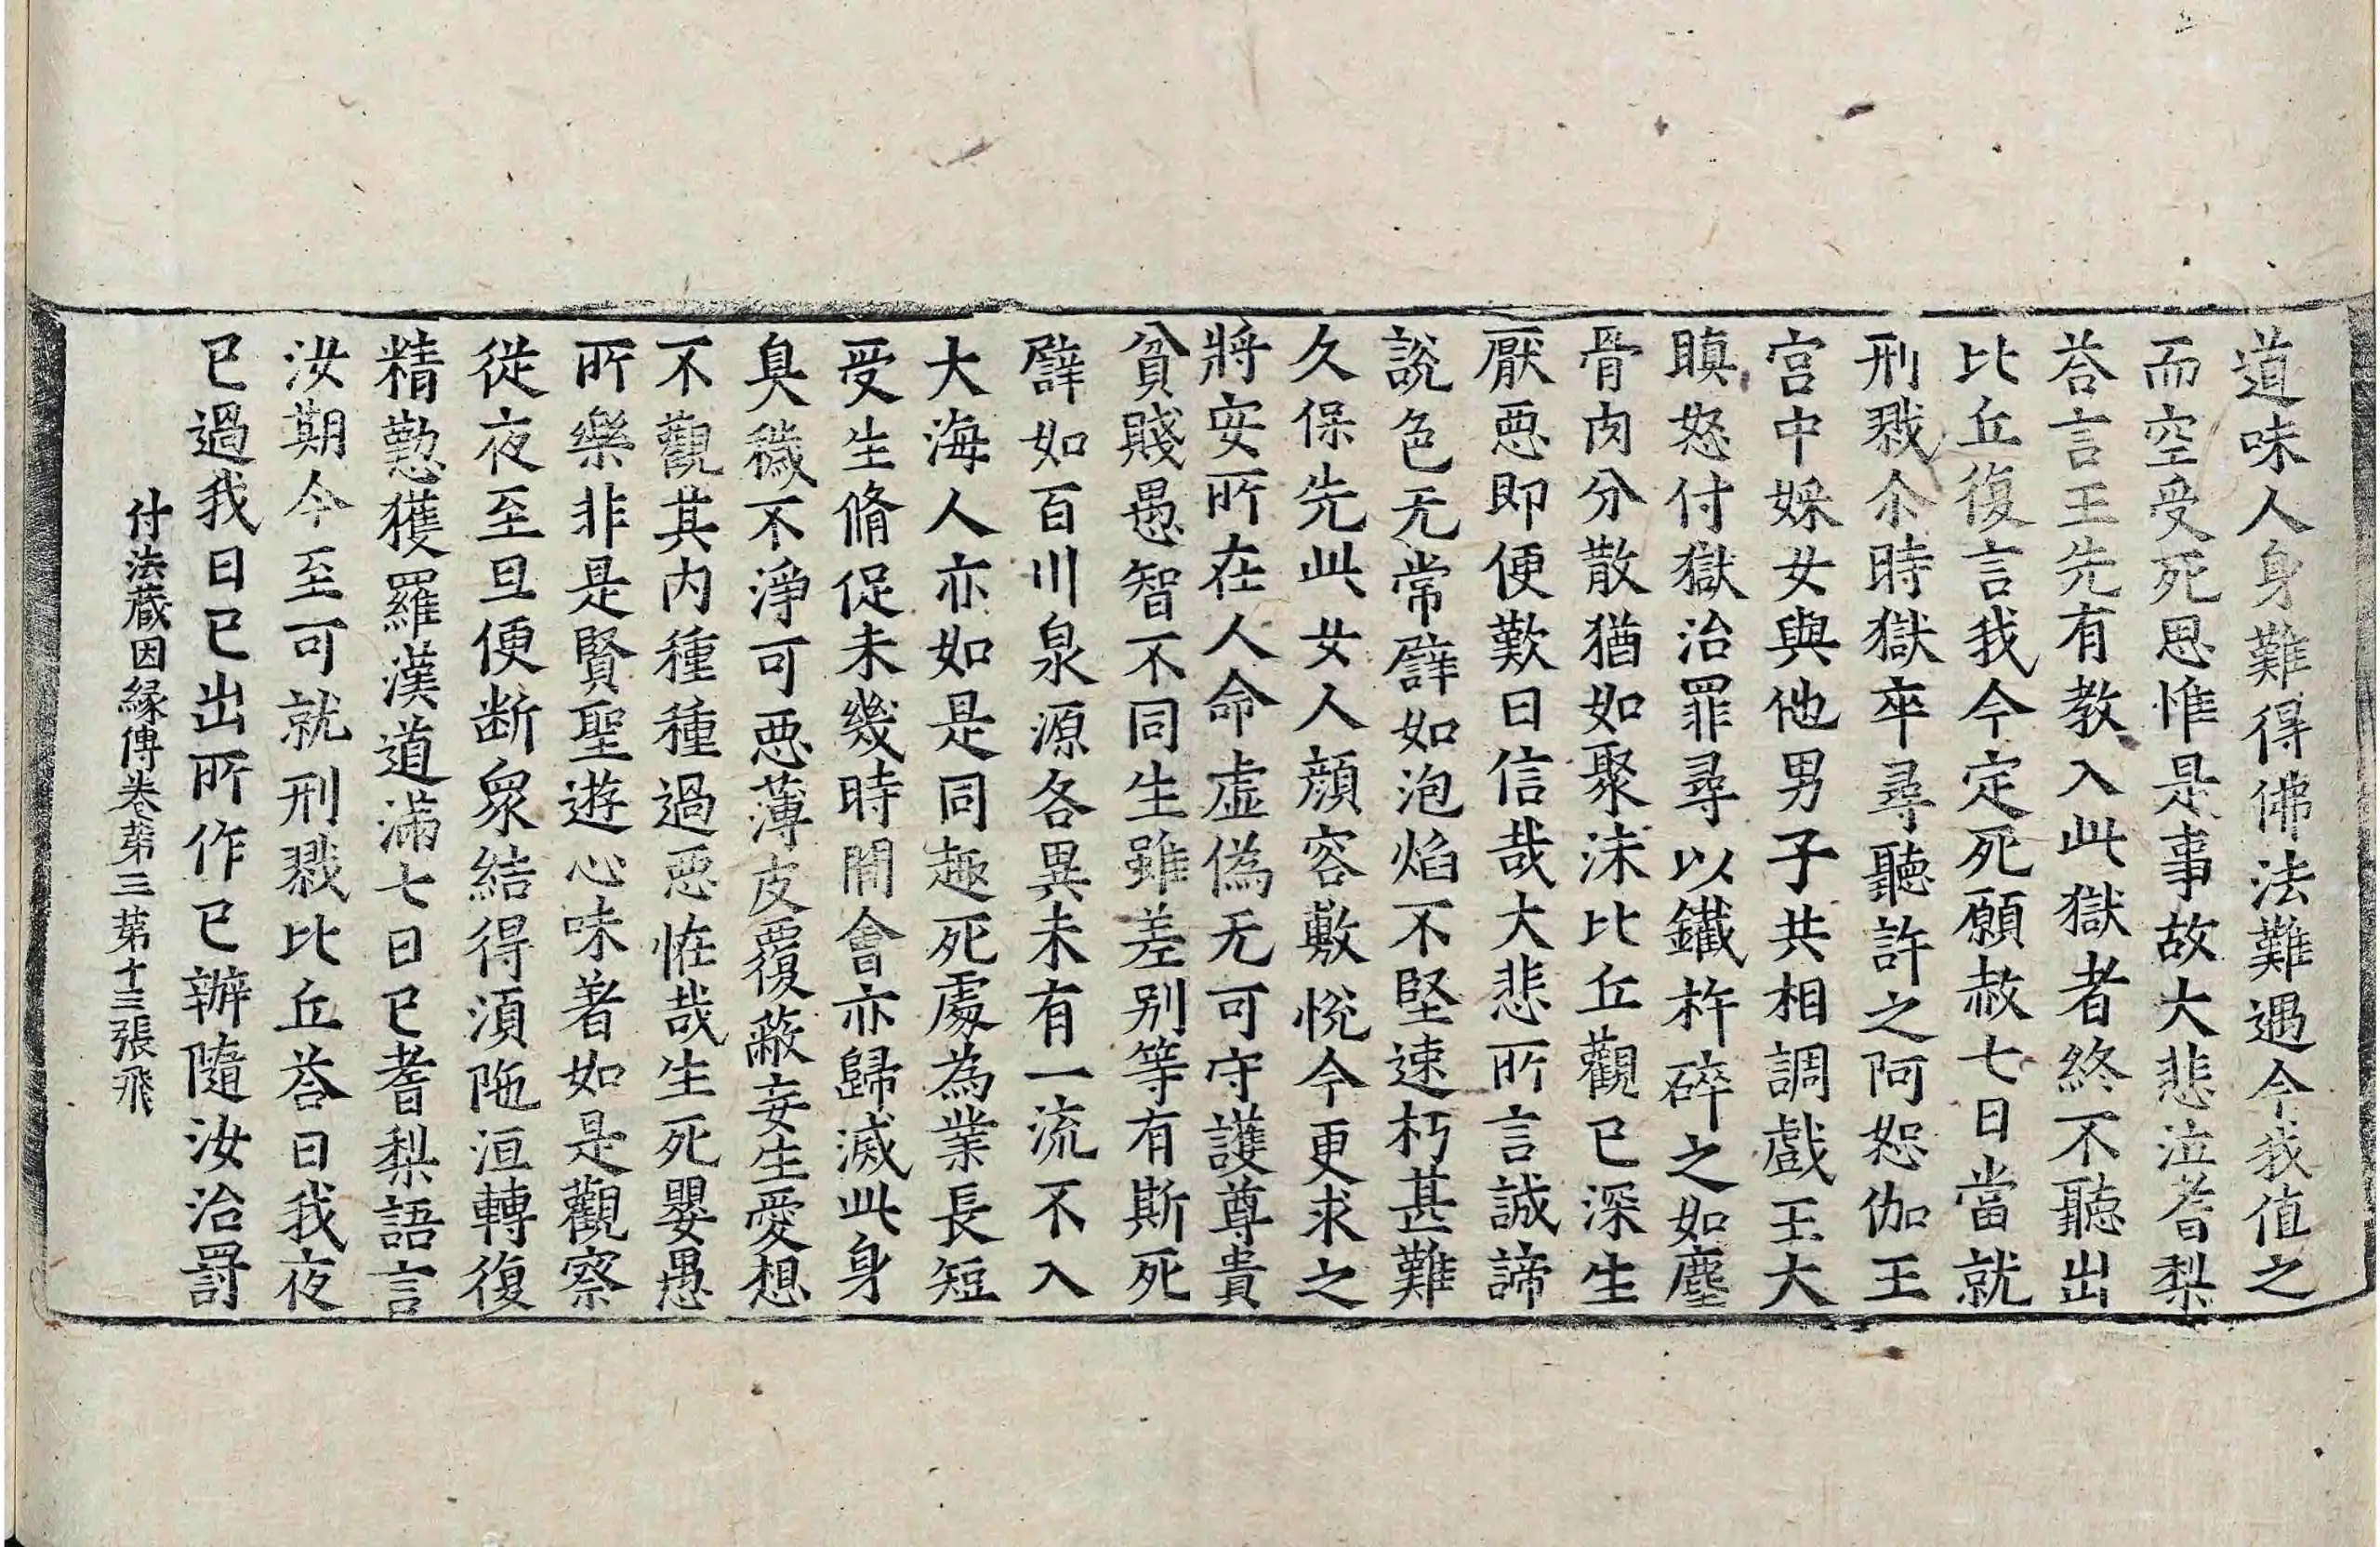 道味人身難得佛法難遇今我值之
而空受死思惟是事故大悲泣耆梨
荅言王先有教入此獄者終不聽出
比丘復言我今定死願赦七日當就
刑戮尒時獄卒尋聽許之阿恕伽王
宮中婇女與他男子共相調戲王大
瞋怒付獄治罪尋以鐵杵碎之如塵
骨肉分散猶如聚沫比丘觀已深生
厭惡即便歎曰信哉大悲所言誠諦
說色无常譬如泡焰不堅速朽甚難
久保先此女人顔容敷悅今更求之
將安所在人命虛偽无可守護尊貴
貧賤愚智不同生雖差別等有斯死
譬如百川泉源各異未有一流不入
大海人亦如是同趣死處為業長短
受生脩促未幾時閒會亦歸滅此身
臭穢不淨可惡薄皮覆蔽妄生愛想
不觀其內種種過惡恠哉生死嬰愚
所樂非是賢聖遊心味著如是觀察
從夜至旦便断衆結得須陁洹轉復
精懃獲羅漢道滿七日已耆梨語言
汝期今至可就刑戮比丘荅曰我夜
已過我日已出所作已辦隨汝治罰
付法蔵因縁傳卷第三第十三張飛